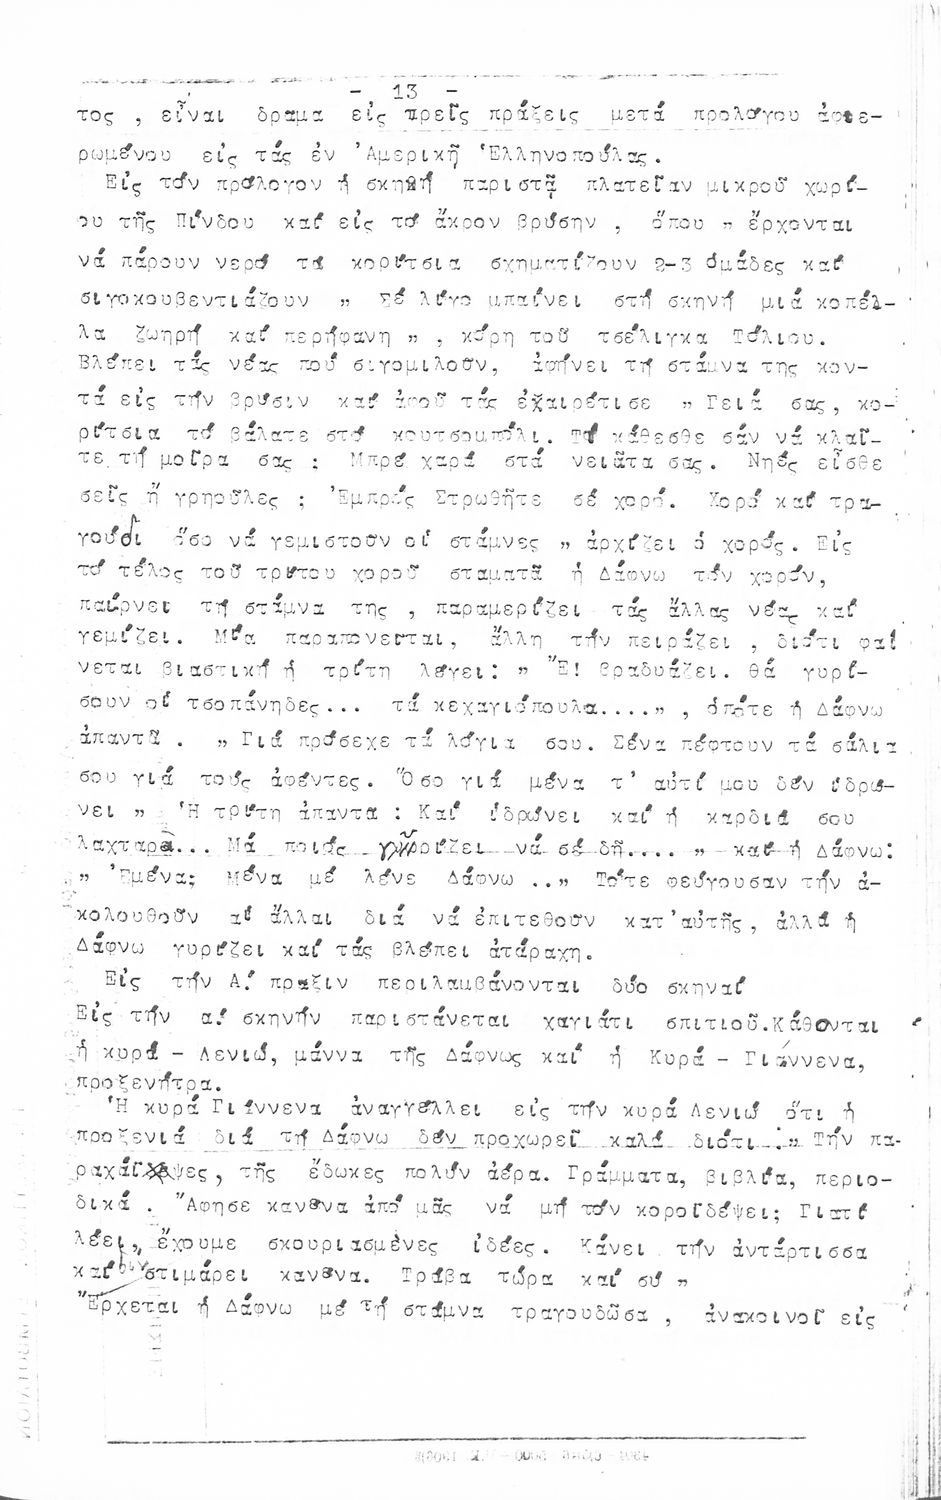 - 13 -
τος , εἶναι δραμα εἰς πρεῖς πράξεις μετά προλόγου ἀφιε-
ρωμένου εἰς τάς ἐν 'Αμερικῇ 'Ελληνοπούλας.
Εἰς τόν πρόλογον ἡ σκηνή παριστᾷ πλατεῖαν μικροῦ χωρί-
ου τῆς Πίνδου καί εἰς τό ἄκρον βρύσην , ὅπου " ἔρχονται
νά πάρουν νερό τά κορίτσια σχηματίζουν 2-3 ὁμάδες καί
σιγοκουβεντιάζουν " Σέ λίγο μπαίνει στή σκηνή μιά κοπέλ-
λα ζωηρή καί περήφανη " , κόρη τοῦ τσέλιγκα Τόλιου.
Βλέπει τάς νέας πού σιγομιλοῦν, ἀφήνει τή στάμνα της κον-
τά εἰς τήν βρύσιν καί ἀφοῦ τάς ἐχαιρέτισε " Γειά σας, κο-
ρίτσια τό βάλατε στό κουτσομπόλι. Τί κάθεσθε σάν νά κλαῖ-
τε τή μοῖρα σας : Μπρέ χαρά στά νειᾶτα σας. Νηές εἶσθε
σεῖς ἤ γρηοῦλες ; 'Εμπρός Στρωθῆτε σέ χορό. Χορό καί τρα-
γούδι ὅσο νά γεμιστοῦν οἱ στάμνες " ἀρχίζει ὁ χορός. Εἰς
τό τέλος τοῦ τρίτου χοροῦ σταματᾶ ἡ Δάφνω τόν χορόν,
παίρνει τή στάμνα της , παραμερίζει τάς ἄλλας νέας καί
γεμίζει. Μία παραπονεῖται, ἄλλη τήν πειράζει , διότι φαί
νεται βιαστική ἡ τρίτη λέγει: " Ἔ! βραδυάζει. θά γυρί-
σουν οἱ τσοπάνηδες... τά κεχαγιόπουλα....", ὁπότε ἡ Δάφνω
ἀπαντᾶ . " Γιά πρόσεχε τά λόγια σου. Σένα πέφτουν τά σάλια
σου γιά τούς ἀφέντες. Ὅσο γιά μένα τ' αὐτί μου δέν ἱδρώ-
νει " Ἡ τρίτη ἀπαντα : Καί ἱδρώνει καί ἡ καρδιά σου
λαχταρᾶ... Μά ποιός γυρίζει νά σέ δῆ.... " καί ἡ Δάφνω:
" 'Εμένα; Μένα μέ λένε Δάφνω .." Τότε φεύγουσαν τήν ἀ-
κολουθοῦν αἱ ἄλλαι διά νά ἐπιτεθοῦν κατ'αὐτῆς, ἀλλά ἡ
Δάφνω γυρίζει καί τάς βλέπει ἀτάραχη.
Εἰς τήν Α΄ πραξιν περιλαμβάνονται δύο σκηναί
Εἰς τήν α΄ σκηνήν παριστάνεται χαγιάτι σπιτιοῦ.Κάθονται
ἡ κυρά - Λενιώ, μάννα τῆς Δάφνως καί ἡ Κυρά - Γιάννενα,
προξενήτρα.
Ἡ κυρά Γιάννενα ἀναγγέλλει εἰς τήν κυρά Λενιώ ὅτι ἡ
προξενιά διά τή Δάφνω δέν προχωρεῖ καλά διότι :" Τήν πα-
ραχάϊδεψες, τῆς ἔδωκες πολύν ἀέρα. Γράμματα, βιβλία, περιο-
δικά . Ἄφησε κανένα ἀπό μᾶς νά μή τόν κοροϊδέψει; Γιατί
λέει, ἔχουμε σκουριασμένες ἰδέες. Κάνει τήν ἀντάρτισσα
καί στιμάρει κανένα. Τράβα τώρα καί σύ "
Ἔρχεται ἡ Δάφνω μέ τή στάμνα τραγουδῶσα , ἀνακοινοῖ εἰς